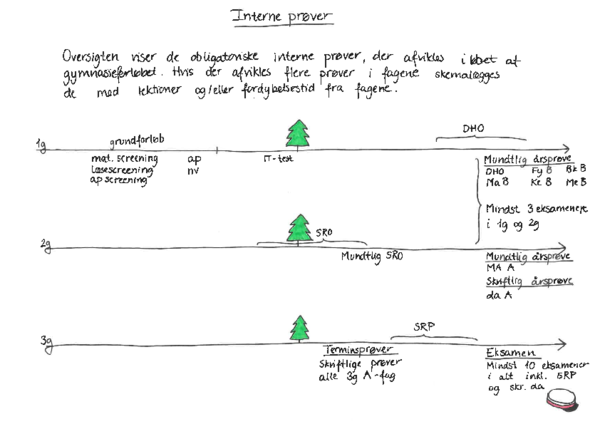 Interne prøver
Oversigten viser de obligatoriske interne prøver, der afvikles i løbet af
gymnasieforløbet. Hvis der afvikles flere prøver i fagene skemalægges
de med lektioner og/eller fordybelsestid fra fagene.
DHO
grundforløb
1g
mat. screening ap IT-test Mundtlig årsprøve
læsescreening nv DHO Fy B Bk B
ap screening Ma B Ke B Me B
Mindst 3 eksamener
i 1g og 2g
SRO
2g
Mundtlig SRO Mundtlig årsprøve
MA A
Skriftlig årsprøve
da A
SRP
3g
Terminsprøver Eksamen
Skriftlige prøver Mindst 10 eksamener
alle 3g A-fag i alt inkl. SRP
og skr. da